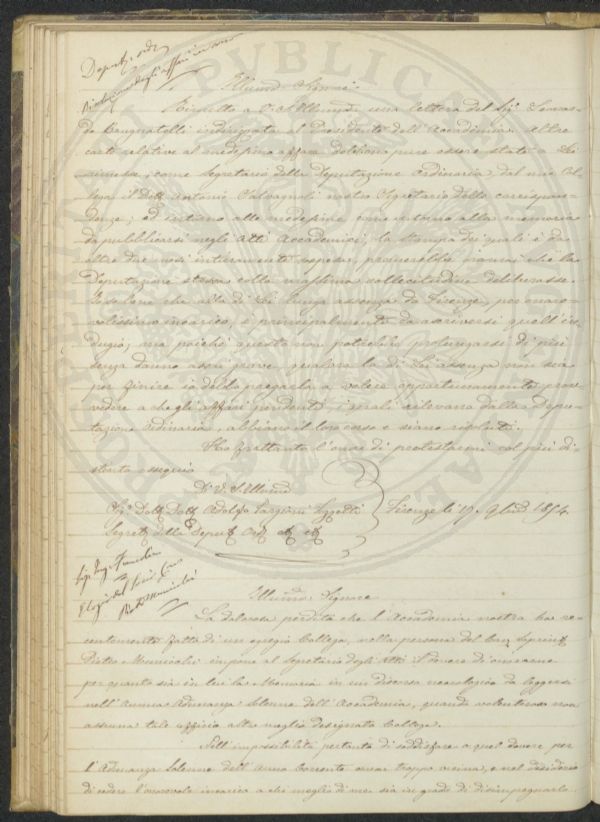 Deputaz. ord.
Risoluzione degli affari in corso
Illumo. Signore
Rimetto a V. S. Illuma. una lettera del Sigr.
do Brugnatelli indirizzata al Presidente dell'Accademia. Altre
carte relative al medesimo affare debbono pure essere state a Lei
rimesse, come Segretario della Deputazione Ordinaria, dal mio Col-
lega il Dott. Antonio Salvagnoli nostro Segretario delle corrispon-
denze; ed intorno alle medesime come intorno alla memoria
da pubblicarsi negli Atti Accademici, la stampa dei quali è da
oltre due mesi interamente sospesa, premerebbe
che la
Deputazione stessa colla massima sollecitudine deliberasse.
Io so bene che alla di Lei lunga assenza da Firenze, per onore-
volissimo incarico, è principalmente da ascriversi quest'in-
dugio; ma poichè questo non potrebbe prolungarsi di più
senza danno
, qualora la di Lei assenza non sia
per finire
pregarla a volere opportunamente prov-
vedere a che gli affari pendenti, i quali rilevano dalla Depu-
tazione Ordinaria, abbiano il loro corso e siano risoluti.
Ho frattanto l'onore di protestarmi col più di-
stinto ossequio
Di V. S. Illuma.
Sigr. Dott. Adolfo Targioni Tozzetti
Firenze li 19.
1854.
Segret. della Deput. Ord.
Sigr. Ingr. Francolini
Elogio del Socio Cav.
Prof. Municchi
Illumo. Signore
La dolorosa perdita che l'Accademia nostra ha re-
centemente fatta di un egregio Collega, nella persona del Cav.
Pietro Municchi impone al Segretario degli Atti il dovere di onorarne
per quanto sia in lui la Memoria in un discorso necrologico da leggersi
nell'Annua Adunanza Solenne dell'Accademia, quando volenteroso non
assuma tale ufficio altro meglio designato Collega.
Nell'impossibilità pertanto di soddisfare a quel dovere per
l'Adunanza Solenne dell'anno corrente ormai troppo vicina, e nel desiderio
di cedere l'onorevole incarico a chi meglio di me sia in grado di disimpegnarlo,